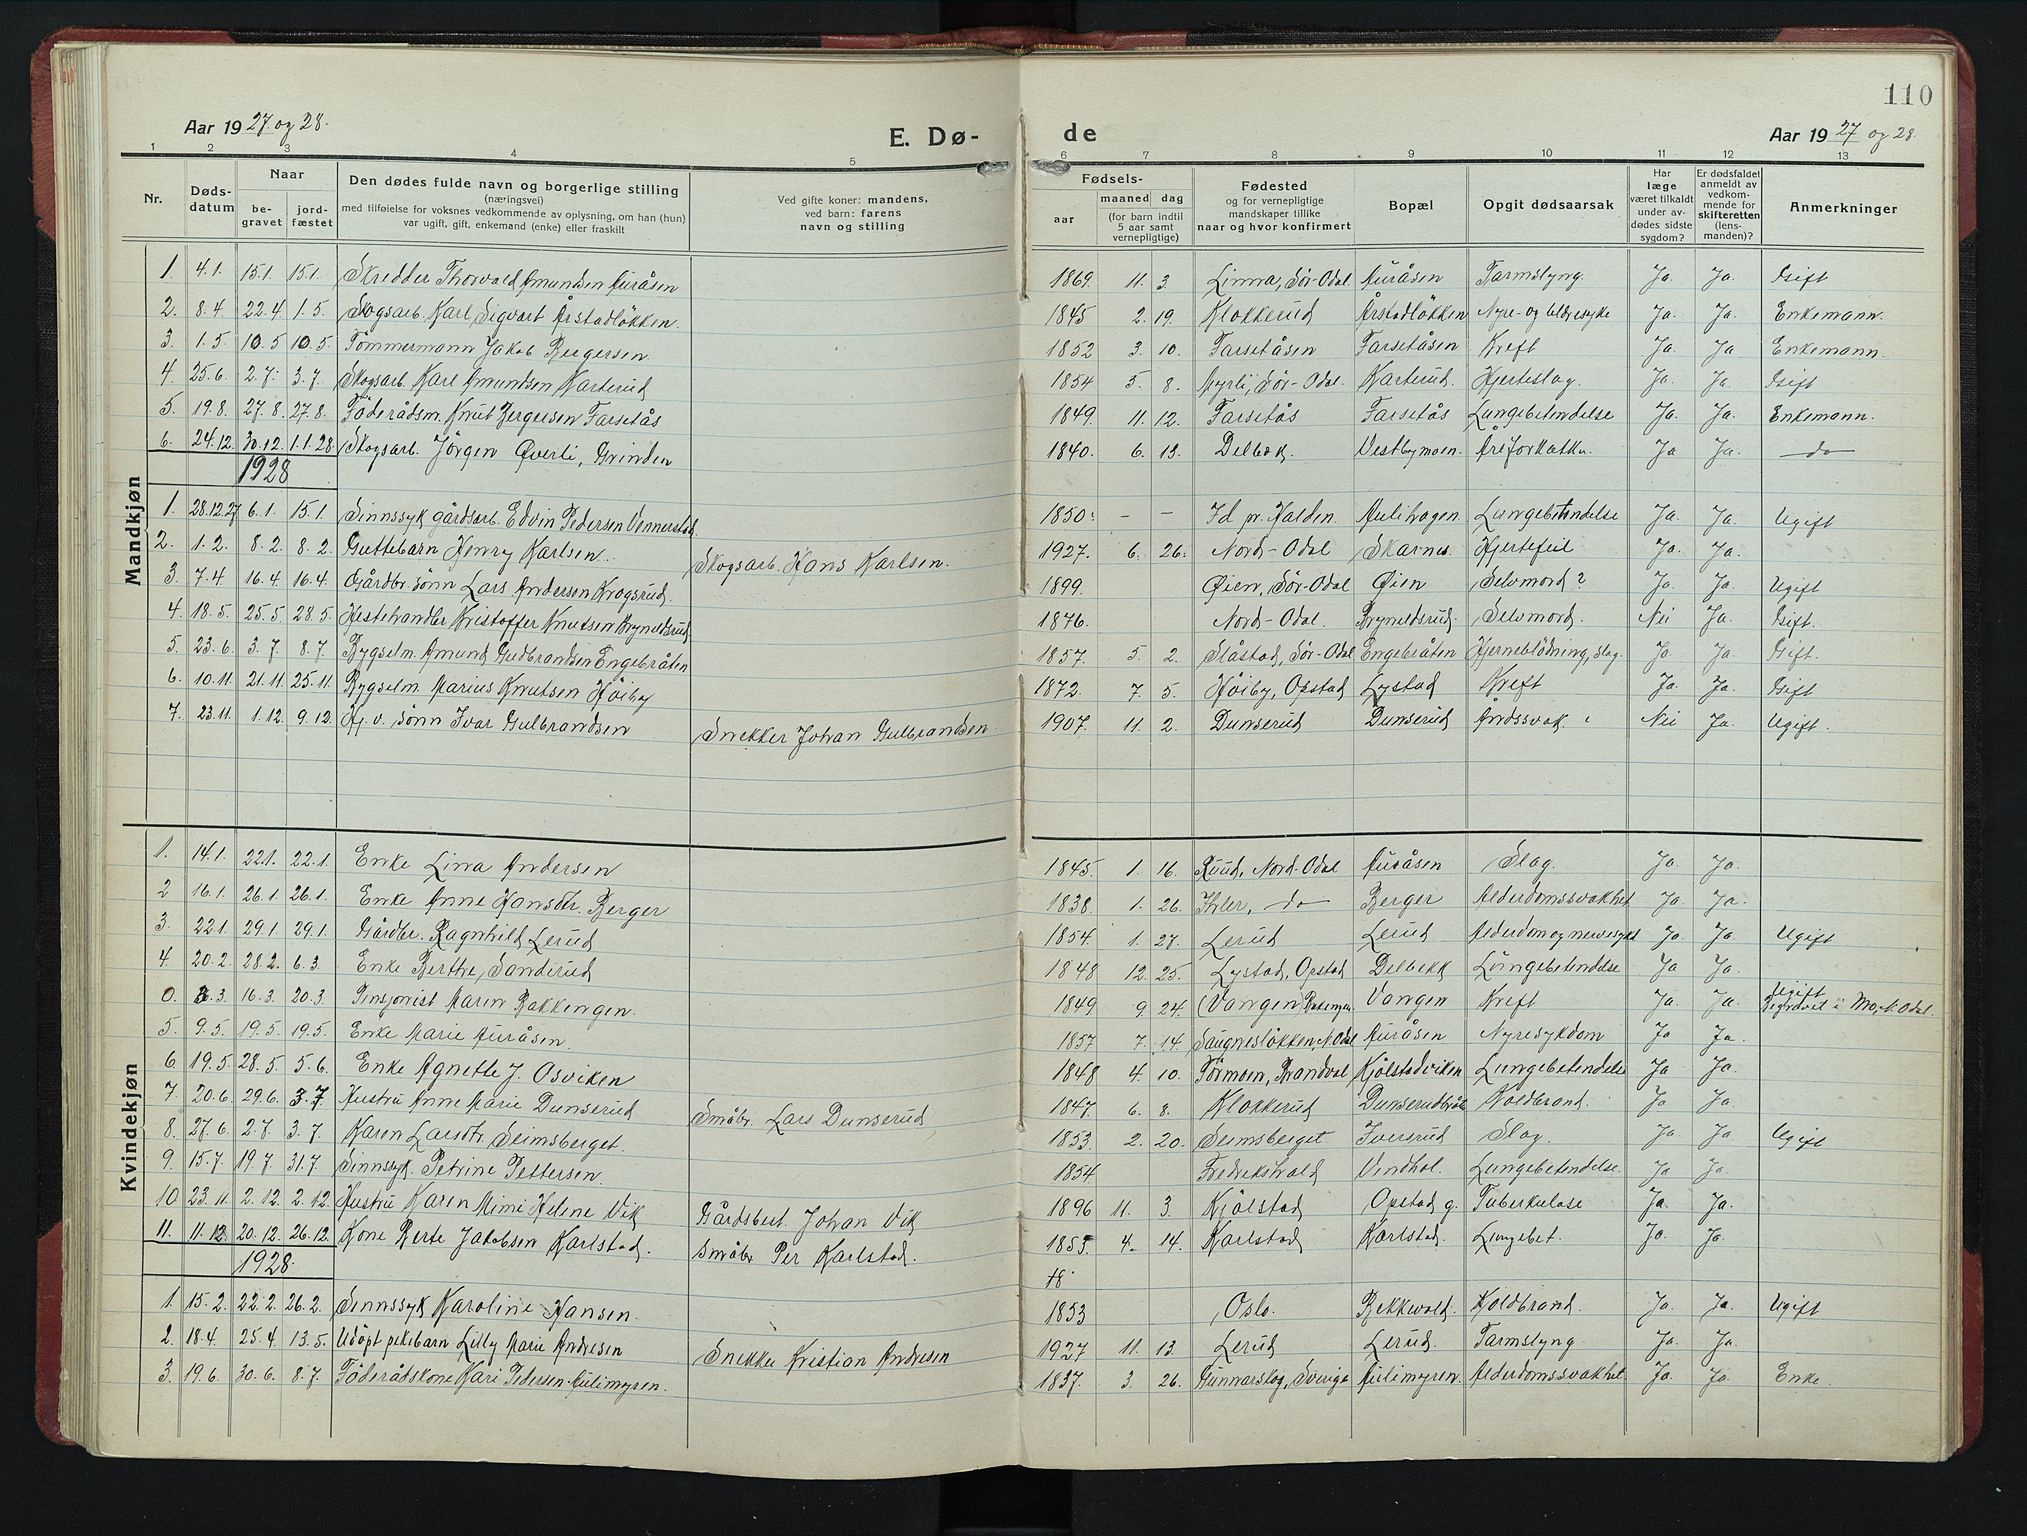 110
Aar 1927 og 28.
E. Dø-
de
Aar 1927 og 28.
1 2 3 4 5 6 7 8 9 10 11 12 13
Nr.
Døds-
datum
Naar
be-
gravet
jord-
fæstet
Den dødes fulde navn og borgerlige stilling
(næringsvei)
med tilføielse for voksnes vedkommende av oplysning, om han (hun)
var ugift, gift, enkemand (enke) eller fraskilt
Ved gifte koner: mandens,
ved barn: farens
navn og stilling
Fødsels-
aar
maaned dag
(for barn indtil
5 aar samt
vernepligtige)
Fødested
og for vernepligtige
mandskaper tillike
naar og hvor konfirmert
Bopæl
Opgit dødsaarsak
Har
læge
været tilkaldt
under av-
dødes sidste
sygdom?
Er dødsfaldet
anmeldt av
vedkom-
mende for
skifteretten
(lens-
manden)?
Anmerkninger
Mandkjøn
1. 4.1. 15.1. 15.1. Skredder Thorvald Amundsen Auråsen 1869. 11. 3. Linna, Sør-Odal. Auråsen Tarmslyng. Ja. Ja. Gift
2. 8.4. 22.4. 1.5. Skogsarb. Karl Sigvart Årstadløkken. 1845 2. 19. Klokkerud Årstadløkken Nyre- og blæresyke Ja. Ja. Enkemann.
3. 1.5. 10.5 10.5. Tømmermann Jakob Bergersen. 1852 3. 10. Farsetåsen Farsetåsen Kreft Ja. Ja Enkemann.
4. 25.6. 2.7. 3.7. Skogsarb. Karl Amundsen Karterud 1854 5. 8. Myrli, Sør-Odal. Karterud. Hjerteslag. Ja. Ja. Gift
5. 19.8. 27.8. 27.8. Föderådsm. Knut Bergersen Farsetås 1849. 11. 12. Farsetås Farsetås Lungebetendelse Ja. Ja. Enkemann.
6. 24.12. 30.12. 1.1.28. Skogsarb. Jörgen Øverli, Grinden 1840. 6. 13. Delbæk. Vestbymoen. Åreforkalkn. Ja Ja. do
1928
1. 28.12.27 6.1. 15.1. Sinnssyk gårdsarb. Edvin Pedersen Vennerstad. 1850. - - Id pr. Halden. Aulihagen Lungebetendelse Ja. Ja. Ugift
2. 1.2. 8.2. 8.2. Guttebarn Henry Karlsen. Skogsarb. Hans Karlsen. 1927. 6. 26. Nord-Odal Skarnes. Hjertefeil Ja. Ja.
3. 7.4. 16.4. 16.4. Gårdbr. sönn Lars Andersen Krogsrud. 1899. Øien, Sør-Odal Øien Selvmord? Ja. Ja. Ugift
4. 18.5. 25.5. 28.5. Hestehandler Kristoffer Knutsen Bryneldsrud 1876. Nord-Odal. Bryneldsrud. Selvmord. Nei Ja. Gift.
5. 23.6. 3.7. 8.7. Bygselm. Amund Gudbrandsen Engebråten 1857. 5. 2. Slåstad, Sør-Odal Engebråten Hjerneblödning, slag. Ja Ja. Gift.
6. 10.11. 21.11. 25.11. Bygselm. Marius Knutsen Höiby 1872. 7. 5. Höiby, Opstad Lystad Kreft Ja. Ja. Gift
7. 23.11. 1.12. 9.12. Hj. v. sönn Ivar Gulbrandsen Snekker Johan Gulbrandsen. 1907. 11. 2. Dunserud Dunserud Åndssvak. Nei Ja. Ugift.
Kvindekjøn
1. 14.1. 22.1. 22.1. Enke Lina Andersen 1845. 1. 16. Ruud, Nord-Odal Auråsen Slag. Ja. Ja.
2 16.1. 26.1. 26.1. Enke Anne Hansdtr. Berger 1838. 1. 26. Ihler, do Berger Alderdomssvakhet Ja. Ja.
3. 22.1. 29.1. 29.1. Gårdbr. Ragnhild Lerud 1854. 1. 27. Lerud Lerud Alderdom og Ja. Ja. Ugift
4. 20.2. 28.2. 6.3. Enke Berthe Sanderud 1848 12. 25. Lystad, Opstad Delbekk Lungebetendelse Ja Ja.
0. 3. 16.3. 20.3. Pensjonist Maren Bakkengen. 1849 9 24. Vangen Vangen Kreft Ja. Ja. Ugift Begravet i Nord-Odal.
5. 9.5. 19.5. 19.5. Enke Marie Auråsen. 1857 7. 14 Saugnesløkken, N.Odal Auråsen Nyresykdom Ja Ja.
6. 19.5. 28.5. 5.6. Enke Agnette J. Osviken 1848 4. 10. Tørmoen, Brandval Kjölstadviken Lungebetendelse Ja Ja.
7. 20.6. 29.6. 3.7 Hustru Anne Marie Dunserud Småbr. Lars Dunserud 1847. 6. 8. Klokkerud Koldbrand. Ja Ja.
8. 27.6. 2.7. 3.7. Karen Larsdtr. Seimsberget. 1853. 2. 20. Seimsberget Iversrud Slag. Ja. Ja. Ugift
9. 15.7. 19.7. 31.7. Sinnssyk. Petrine Pettersen. 1854 Fredrikshald Vindhol. Lungebetendelse. Ja Ja.
10 23.11. 2.12. 2.12. Hustru Karen Mimi Helene Vik Gårdsbest. Johan Vik 1896 11. 3. Kjölstad Opstad g. Tuberkulose Ja. Ja.
11. 11.12. 20.12. 26.12. Kone Berte Jakobsen Karlstad. Småbr. Per Karlstad. 1853 4. 14. Karlstad Karlstad. Lungebet. Ja. Ja.
1928. 18
1. 15.2. 22.2. 26.2. Sinnssyk Karoline Hansen. 1853 Oslo. Bekkevold. Koldbrand. Ja. Ja. Ugift
2. 18.4. 25.4. 13.5. Udöpt pikebarn Lilly Marie Andresen Snekker Kristian Andresen 1927 11. 13. Lerud Lerud. Tarmslyng Ja. Ja.
3. 19.6. 30.6. 8.7. Föderådskone Kari Pedersen Aulimyren. 1837. 3. 26. Gunnarskog, Sverige Aulimyren. Alderdomssvakhet Ja. Ja. Enke.